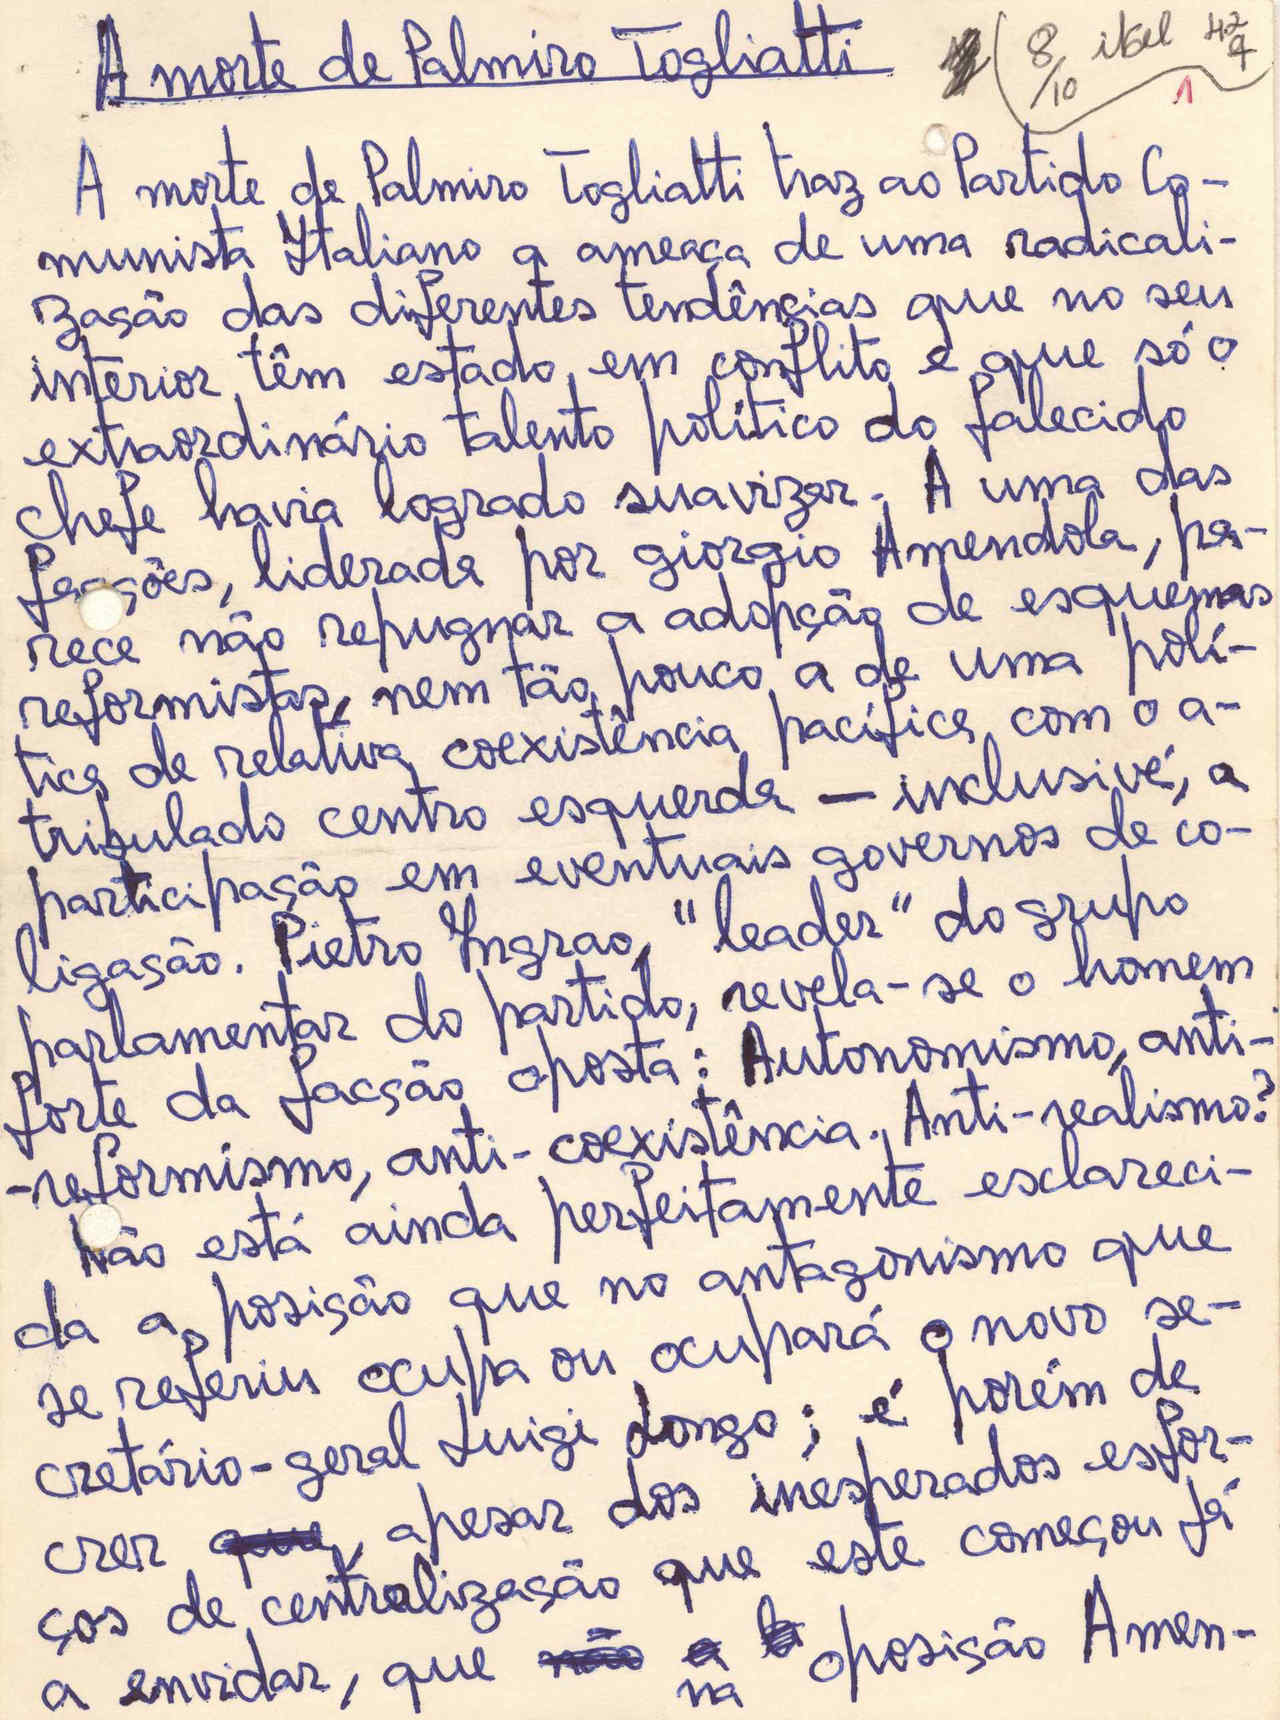 A morte de Palmiro Togliatti
8/10 ital 42/4
1
A morte de Palmiro Togliatti traz ao Partido Co-
munista Italiano a ameaça de uma radicali-
zação das diferentes tendências que no seu
interior têm estado em conflito e que só o
extraordinário talento político do falecido
chefe havia logrado suavizar. A uma das
facções, liderada por giorgio Amendola, pa-
rece não repugnar a adopção de esquemas
reformistas, nem tão pouco a de uma polí-
tica de relativa coexistência pacífica com o a-
tribulado centro esquerda — inclusivé, a
participação em eventuais governos de co-
ligação. Pietro Ingrao, "leader" do grupo
parlamentar do partido, revela-se o homem
forte da facção oposta: Autonomismo, anti-
-reformismo, anti-coexistência. Anti-realismo?
Não está ainda perfeitamente esclareci-
da a posição que no antagonismo que
se referiu ocupa ou ocupará o novo se-
cretário-geral Luigi Longo; é porém de
crer que, apesar dos inesperados esfor-
ços de centralização que este começou já
a envidar, que não a na oposição Amen-